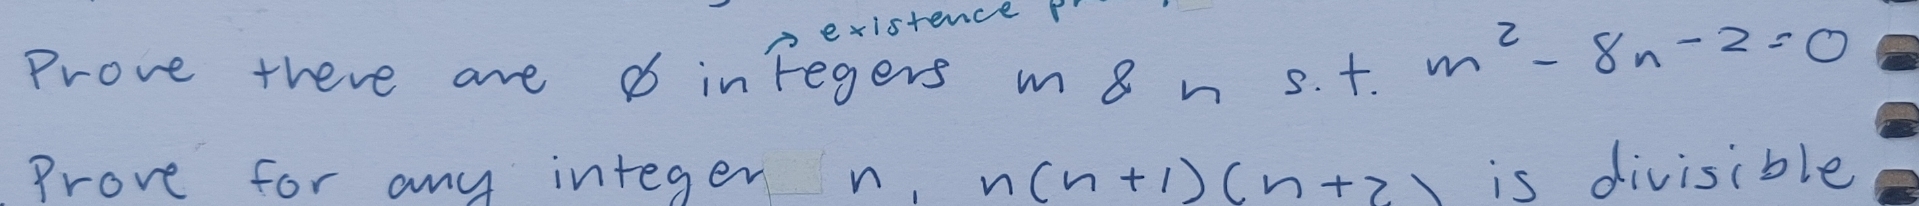 ↗ existence
Prove there are ∅ integers m & n s.t. m² - 8n - 2 = 0
Prove for any integer n, n(n+1)(n+2) is divisible